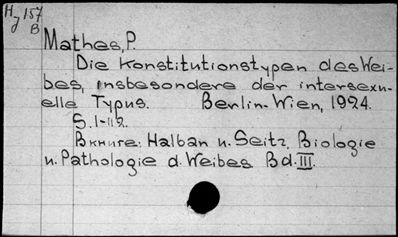 Hy 157
B
Mathes, P.
Die Konstitutionstypen des Wei-
bes, insbesondere der intersexu-
elle Typus. Berlin-Wien, 1924.
S. 1-112.
Вкниге: Halban u. Seitz, Biologie
u. Pathologie d. Weibes Bd. III.